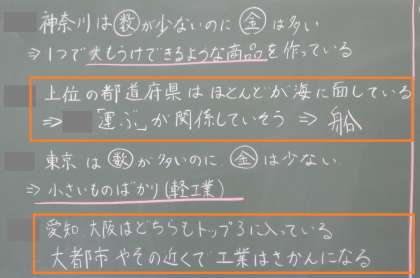 神奈川は㊙数が少ないのに 金は多い
⇒1つで大もうけできるような商品を作っている
上位の都道府県はほとんどが海に面している
⇒ 「運ぶ」が関係していそう ⇒ 船
東京は数が多いのに、金は少ない
⇒ 小さいものばかり(軽工業)
愛知 大阪はどちらもトップ3に入っている
大都市やその近くで工業はさかんになる